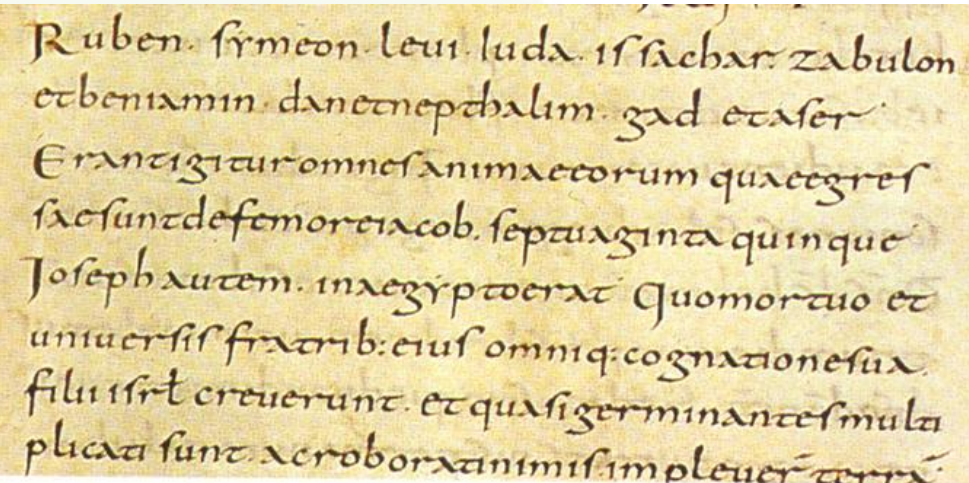 Ruben. symeon. levi. Iuda. issachar. zabulon
et beniamin. dan et nepthalim. gad et aser
Erant igitur omnes animae eorum quae egres
sae sunt de femore iacob. septuaginta quinque
Ioseph autem. in aegypto erat Quo mortuo et
universis fratrib: eius omniq: cognatione sua.
filii isrł creverunt. et quasi germinantes multi
plicati sunt. ac roborati nimis. impleveŕ terrā